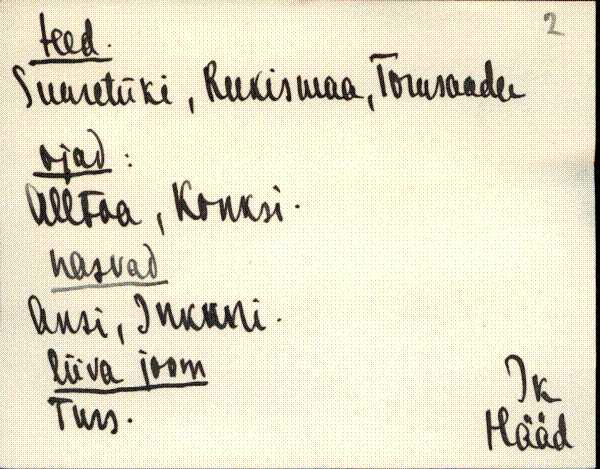 2
teed.
Suuretüki, Rukismaa, Torusaadu
ojad:
Alltoa, Konksi.
nasvad
Ansi, Inkuni.
liiva joom
Turs.
Jk
Hääd